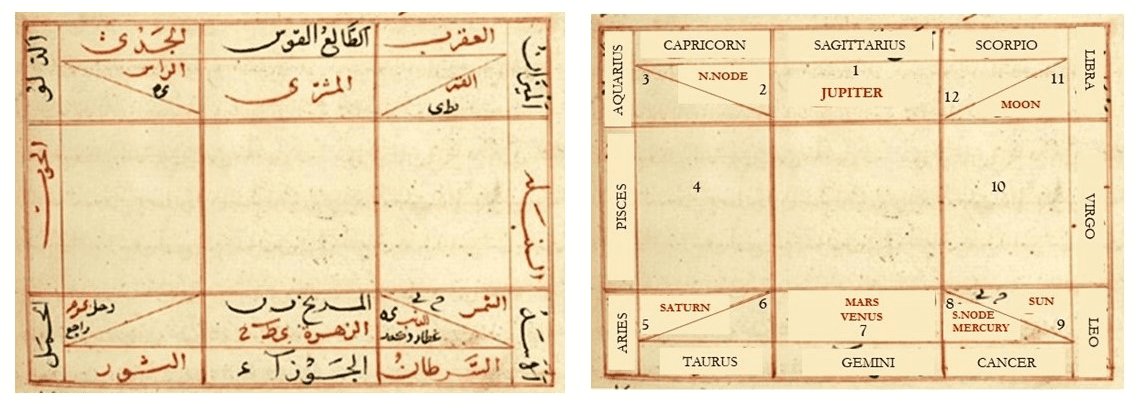 الدلو
الجَدْى
الطَّالعُ القوس
العقرب
الميزان
الراس
المشترى
القمر
الحوت
السنبلة
الحمل
زحل
راجع
المريخ
الشمس
الزهرة
الذنب
الاسد
الثور
الجَوْزَا
السَّرطانُ
AQUARIUS
CAPRICORN
SAGITTARIUS
SCORPIO
LIBRA
3
N.NODE
2
1
JUPITER
12
MOON
11
PISCES
4
10
VIRGO
ARIES
5
SATURN
6
MARS
VENUS
7
8
S.NODE
MERCURY
SUN
9
LEO
TAURUS
GEMINI
CANCER